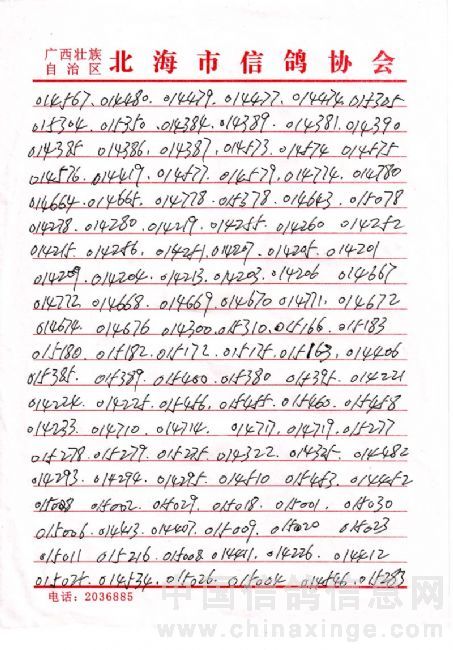 广西壮族自治区 北海市信鸽协会
014567. 014480. 014479. 014477. 014474. 015305
015304. 015350. 014384. 014389. 014381. 014390
014385 014386. 014387. 014573. 014574 014575
014576. 014419. 014577. 014579. 014774. 014780
014664. 014665. 014778. 015378. 014643. 015078
014278. 014280. 014219. 014255. 014260 014252
014215. 014256. 014251. 014207. 014205. 014201
014209. 014204. 014213. 014203. 014206 014667
014772. 014668. 014669. 014670 014771. 014672
014674. 014676 014300. 015310. 015166. 015183
015180. 015182. 015172. 015175. 015163. 014406
015385. 015389. 015400. 015380 015395. 014221
014224. 014225. 015456. 015455. 015460. 015458
014233 014710. 014714. 014717. 014719. 015277
015278. 015279. 015275. 014322. 014325. 014482
014293. 014294. 014295. 014510 015453. 014452
015008 015002. 015029. 015018. 015001. 015030
015006. 014413. 014407. 015009. 015020 015023
015011 015216. 015008. 014411. 014226. 014412
015025. 014534. 015026. 015004 014546. 015283
电话：2036885
中国信鸽信息网
www.chinaxinge.com